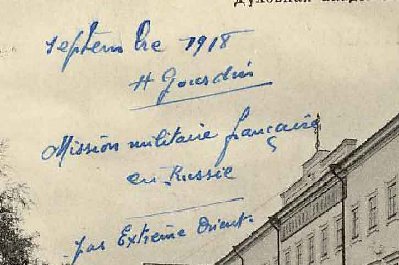 Духовная
septembre 1918
H Gourdin
Mission militaire française
en Russie
par Extrême Orient.